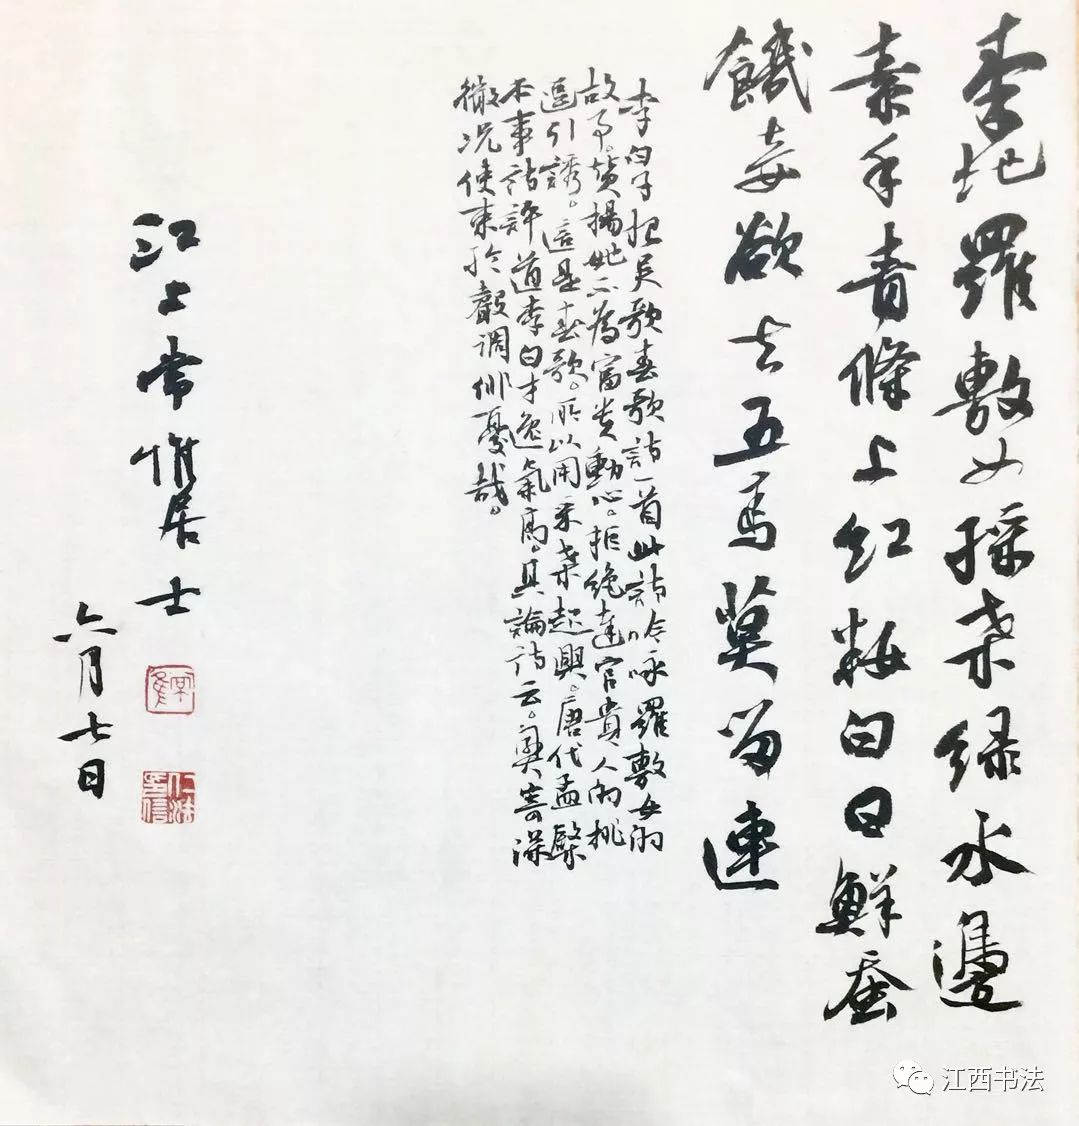 秦地羅敷女採桑綠水邊
素手青條上红粧白日鮮蚕
饑妾欲去五馬莫留連
李白子夜吴歌春歌詩一首此詩吟咏羅敷女的
故事。赞揚她不為富贵動心。拒绝達官貴人的挑
逗引誘。這是春歌。所以用采桑起興。唐代孟棨
本事詩許道李白才逸氣高。其論詩云。興寄深
微况使束於聲調俳憂哉。
江上常惟居士
六月七日
江西书法